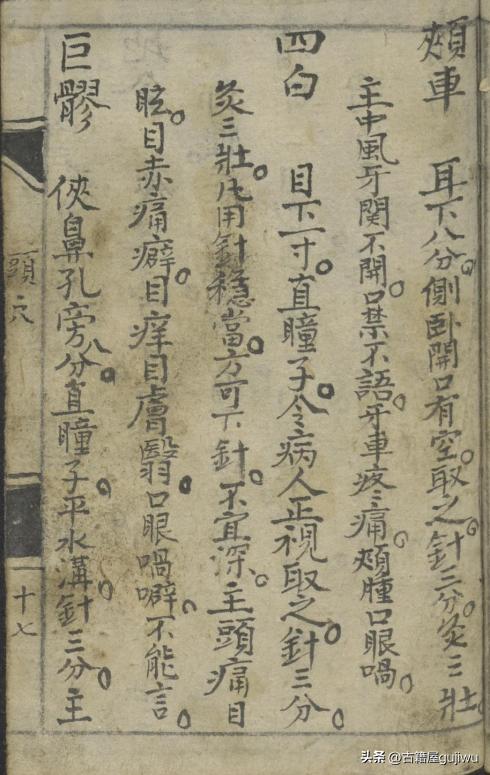 頰車　耳下八分。側臥開口有空。取之。針三分。灸三壯。
主中風牙関不開。口禁不語。牙車疼痛。頰腫口眼喎。
四白　目下一寸。直瞳子。令病人正視取之。針三分。
灸三壯。凡用針穩當。方可下針。不宜深。主頭痛目
眩。目赤痛癖。目痒目膚翳。口眼喎噼。不能言。
巨髎　俠鼻孔旁八分。直瞳子。平水溝。針三分。主
頭穴
十七
头条 @古籍屋gujiwu